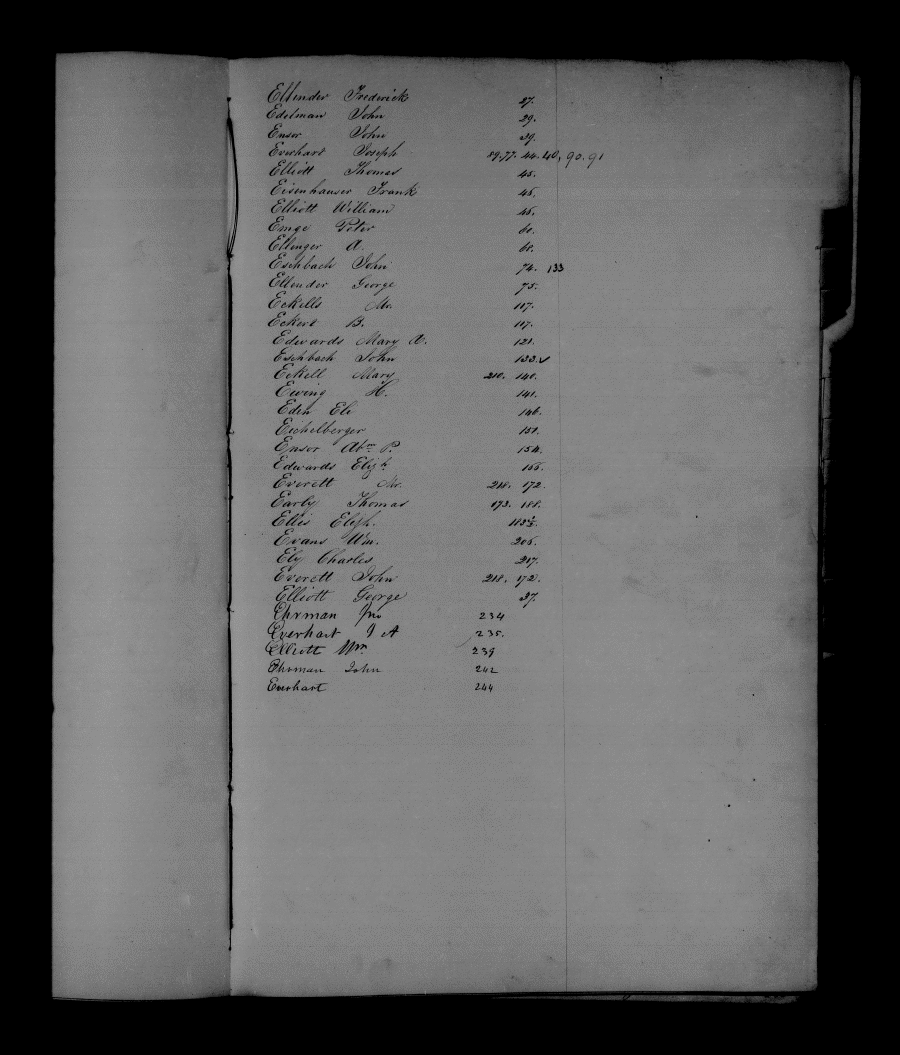 Ellender Frederick 27.
Edelman John 29.
Ensor John 39.
Everhard Joseph 89. 77. 44. 40, 90. 91
Elliott Thomas 45.
Eisenhauser Frank 45.
Elliott William 45.
Emge Peter 60.
Ellinger A. 60.
Eschbach John 74. 133
Ellender George 75.
Eckells Mr. 117.
Eckert B. 117.
Edwards Mary A. 121.
Eschbach John 133. ✓
Eckell Mary 210. 140.
Ewing H. 141.
Eden Eli 146.
Eichelberger 150.
Ensor Abm P. 154.
Edwards Elizh 155.
Everett Mr. 218. 172.
Early Thomas 173. 188.
Ellis Eliph. 183½.
Evans Wm. 205.
Ely Charles 217.
Everett John 218. 172.
Elliott George 37.
Ehrman Jno 234
Everhart J A 235.
Elliott Wm 239
Ehrman John 242
Everhart 244